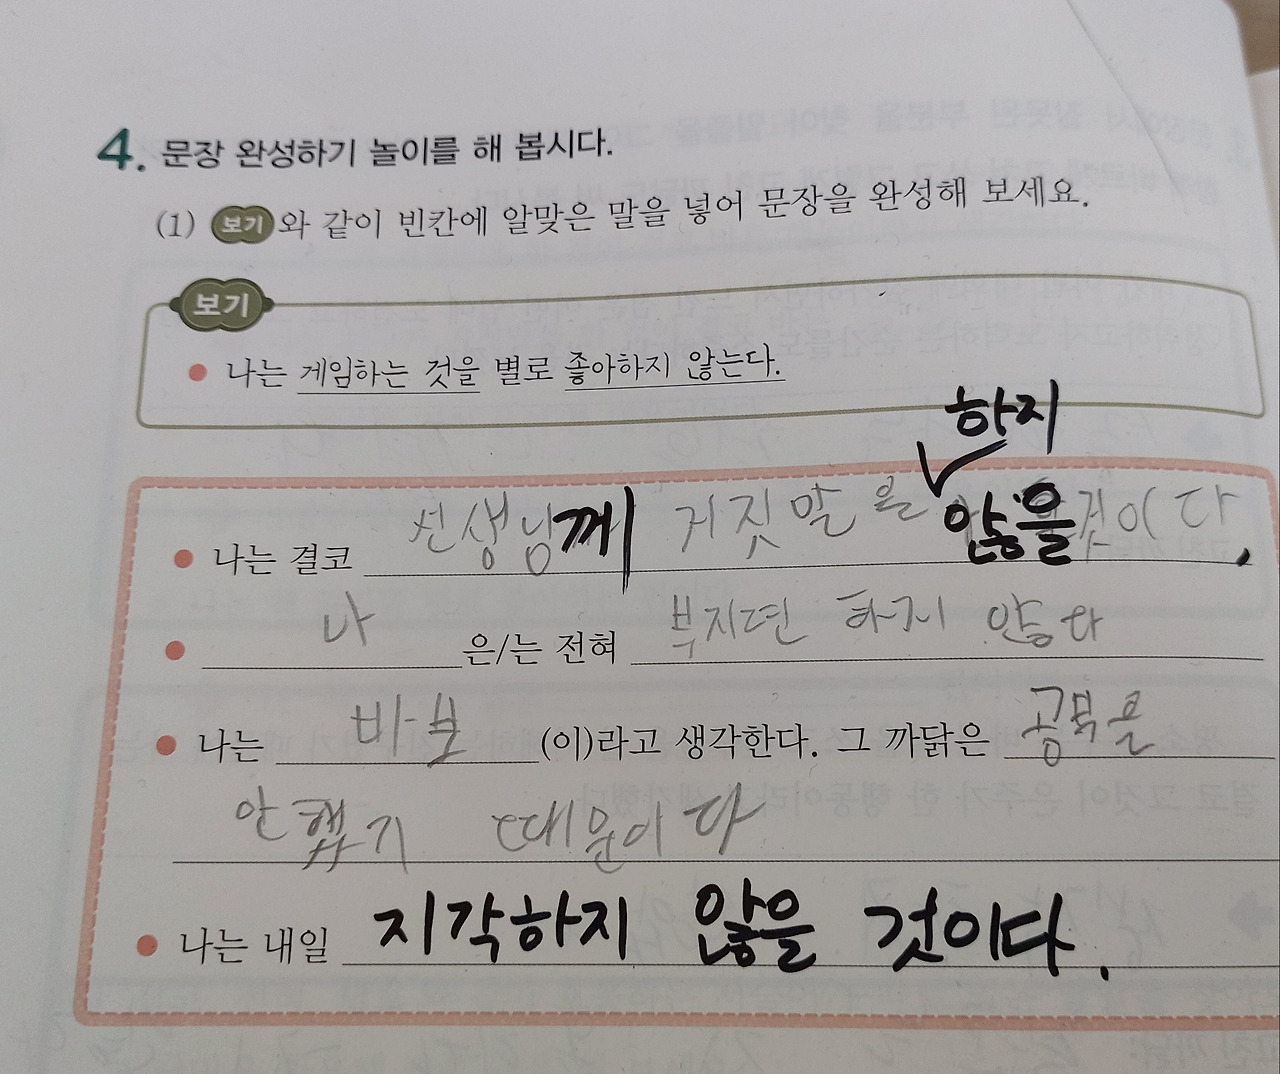 4. 문장 완성하기 놀이를 해 봅시다.
(1) 보기 와 같이 빈칸에 알맞은 말을 넣어 문장을 완성해 보세요.
보기
• 나는 게임하는 것을 별로 좋아하지 않는다.
하지
• 나는 결코 선생님께 거짓말을 않을 것이다.
• 나 은/는 전혀 부지면 하지 안다
• 나는 바보 (이)라고 생각한다. 그 까닭은 공부를
안 했기 때문이다
• 나는 내일 지각하지 않을 것이다.